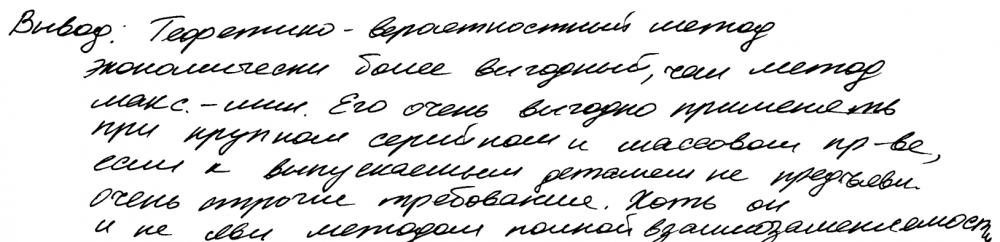 Вывод: Теоретико-вероятностный метод
экономически более выгодный, чем метод
макс.-мин. Его очень выгодно применять
при крупном серийном и массовом пр-ве,
если к выпускаемым деталем не предъяви.
очень строгие требование. Хоть он
и не яви методом полной взаимозаменяемости